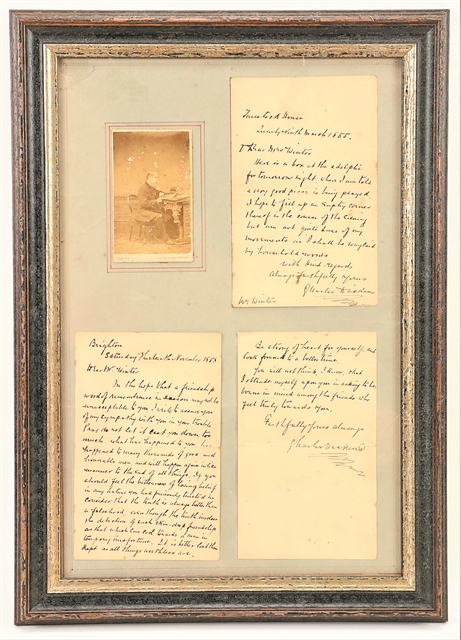 Tavistock House
Twenty Ninth March 1855.
Dear Mrs Winter
Here is a box at the Adelphi
for tomorrow night where I am told
a very good piece is being played
I hope to fill up an empty corner
thereof in the course of the evening
but am not quite sure of my
movements as I shall be required
by household words
With kind regards
Always faithfully yours
Charles Dickens
Mrs Winter
Brighton
Saturday Thirteenth November 1858
Dear Mr Winter
In the hope that a friendly
word of remembrance in season may not be
unacceptable to you I write to assure you
of my sympathy with you in your trouble
Pray do not let it cast you down too
much. What has happened to you has
happened to many thousands of good and
honourable men, and will happen again in like
manner to the end of all things. If you
should feel the bitterness of losing belief
in any nature you had previously trusted in
consider that the truth is always better than
a falsehood even though the truth involves
the detection of such
as that which can cool towards a man in
temporary misfortune. It is better lost than
kept as all things worthless are.
Be strong of heart for yourself, and
look forward to a better time.
You will not think, I know, that
I obtrude myself upon you in asking to be
borne in mind among the friends who
feel truly towards you.
Faithfully yours always
Charles Dickens